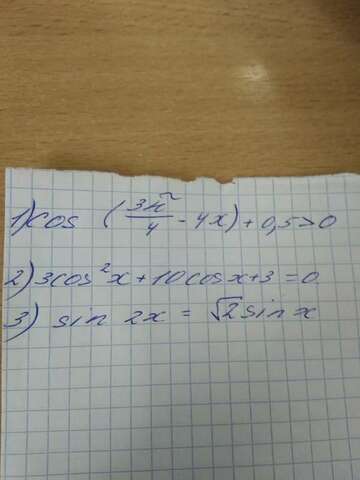 1) cos (3π/4 - 4x) + 0,5 > 0
2) 3cos²x + 10cosx + 3 = 0
3) sin 2x = √2 sin x